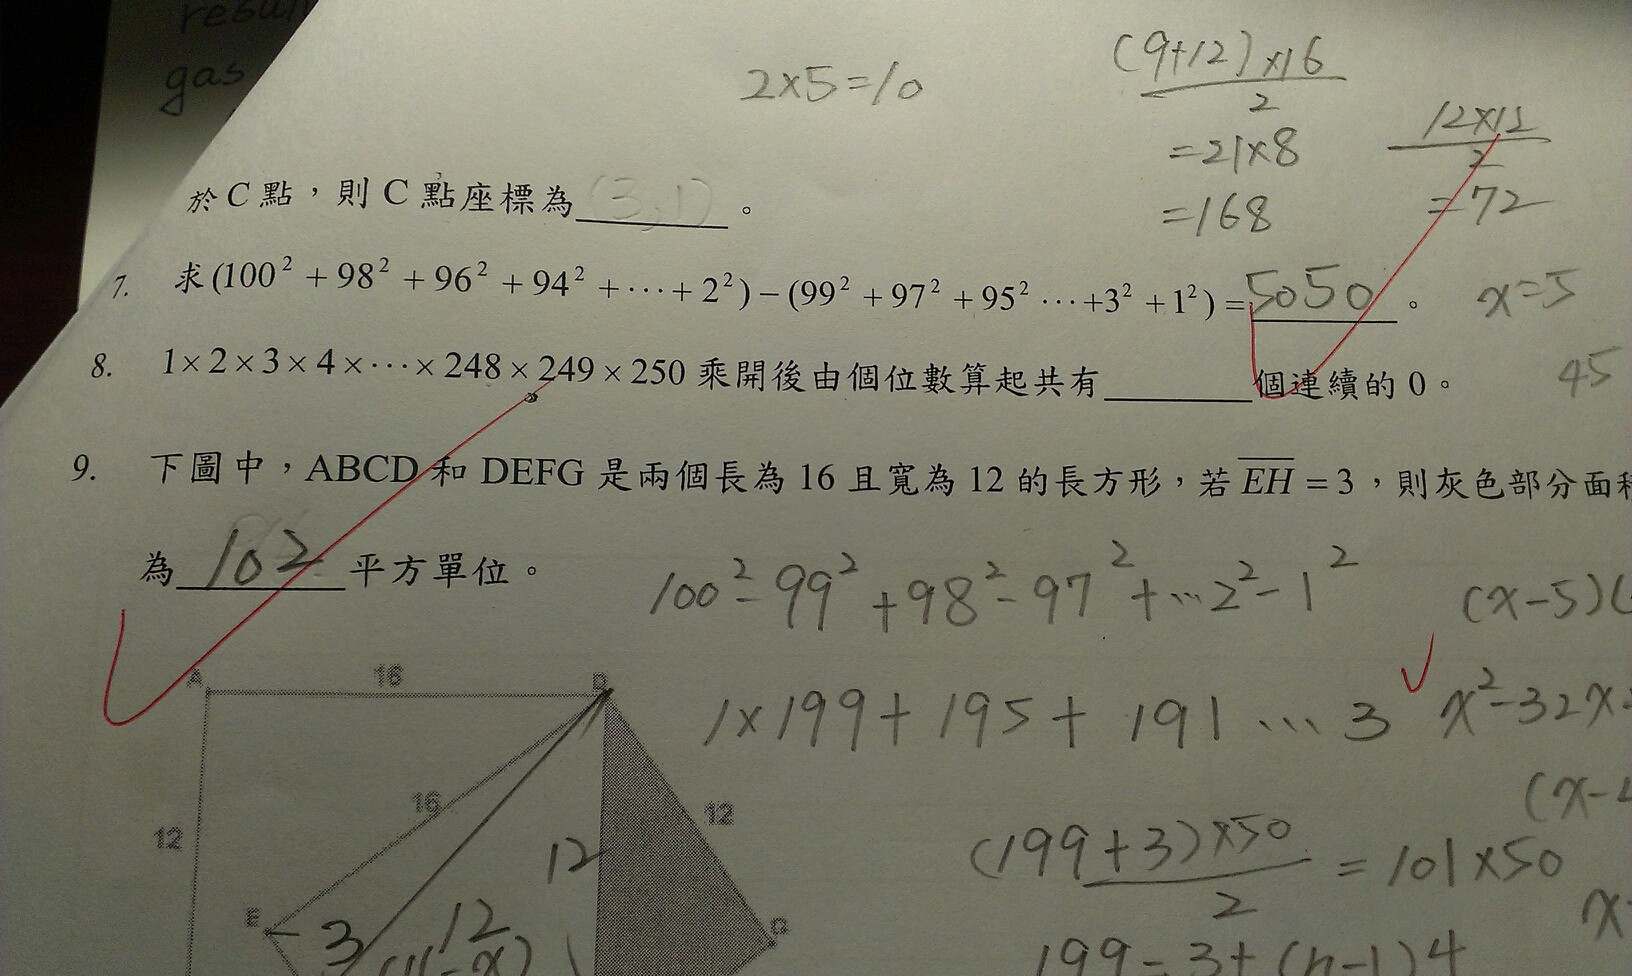 gas
2×5=10
(9+12)×16
2
=21×8
=168
12×12
2
=72
於 C 點，則 C 點座標為(3,1)。
7. 求(100²+98²+96²+94²+⋯+2²)−(99²+97²+95²⋯+3²+1²)=5050。
x=5
8. 1×2×3×4×⋯×248×249×250 乘開後由個位數算起共有______個連續的 0。
45
9. 下圖中，ABCD 和 DEFG 是兩個長為 16 且寬為 12 的長方形，若 EH = 3，則灰色部分面積
為 102 平方單位。
100²-99²+98²-97²+…2²-1²
(x-5)(
A 16 D
1×199+195+191…3
x²-32x
16
12
12
12
(x-
(199+3)×50
2
=101×50
E
3
12
G
199=3+(n-1)4